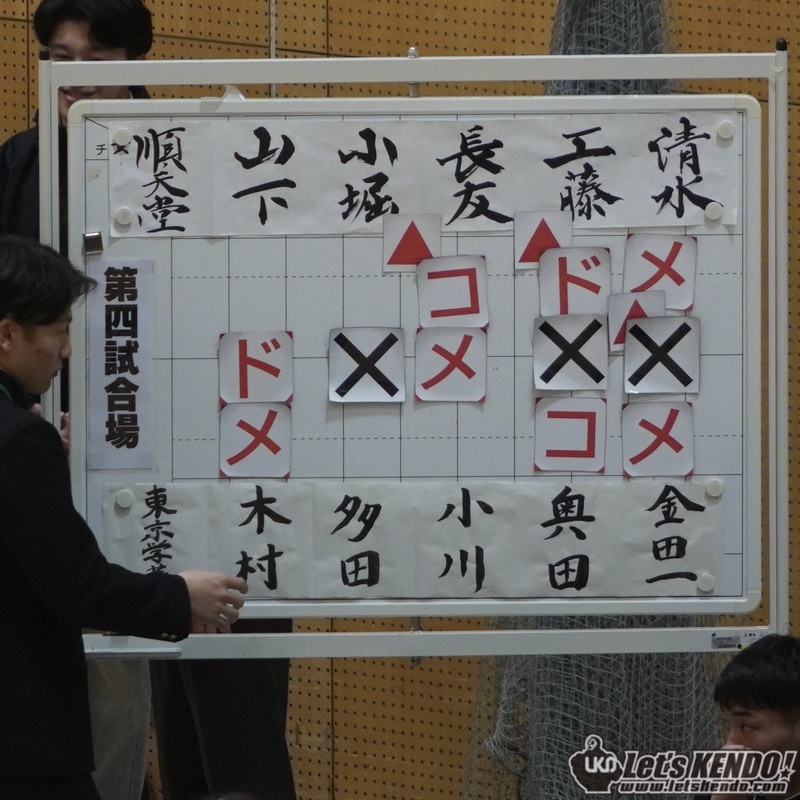 チ
順天堂
山下
小堀
長友
工藤
清水
第四試合場
コ
ド
メ
ド
メ
メ
コ
メ
東京学
木村
多田
小川
奥田
金田一
Let's KENDO!
www.letskendo.com